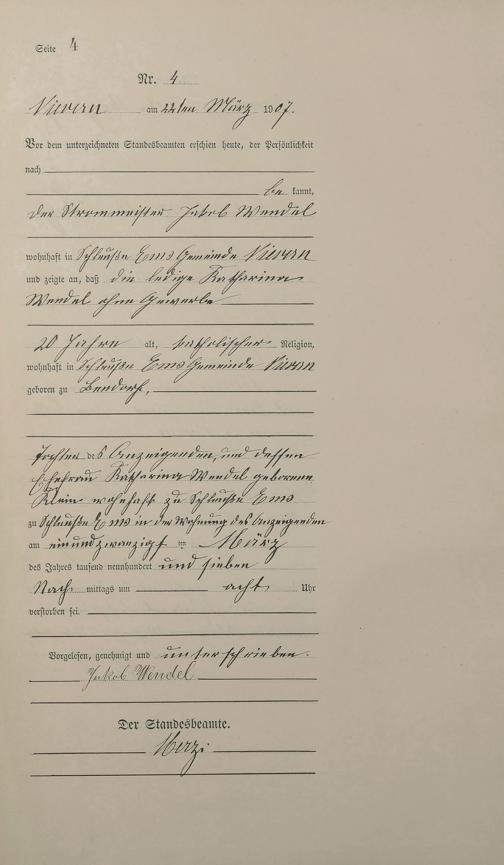 Seite 4
Nr. 4
Nievern am 22ten März 1907.
Vor dem unterzeichneten Standesbeamten erschien heute, der Persönlichkeit
nach
be kannt,
der Strommeister Jakob Wendel
wohnhaft in Schleuße Ems Gemeinde Nievern
und zeigte an, daß die ledige Katharina
Wendel ohne Gewerbe
20 Jahre alt, katholischer Religion,
wohnhaft in Schleuße Ems Gemeinde Nievern
geboren zu Bendorf,
Tochter des Anzeigenden, und dessen
Ehefrau Katharina Wendel geborenen
Klein wohnhaft zu Schleuße Ems
zu Schleuße Ems in der Wohnung des Anzeigenden
am einundzwanzigst en März
des Jahres tausend neunhundert und sieben
Nach mittags um acht Uhr
verstorben sei.
Vorgelesen, genehmigt und unterschrieben.
Jakob Wendel
Der Standesbeamte.